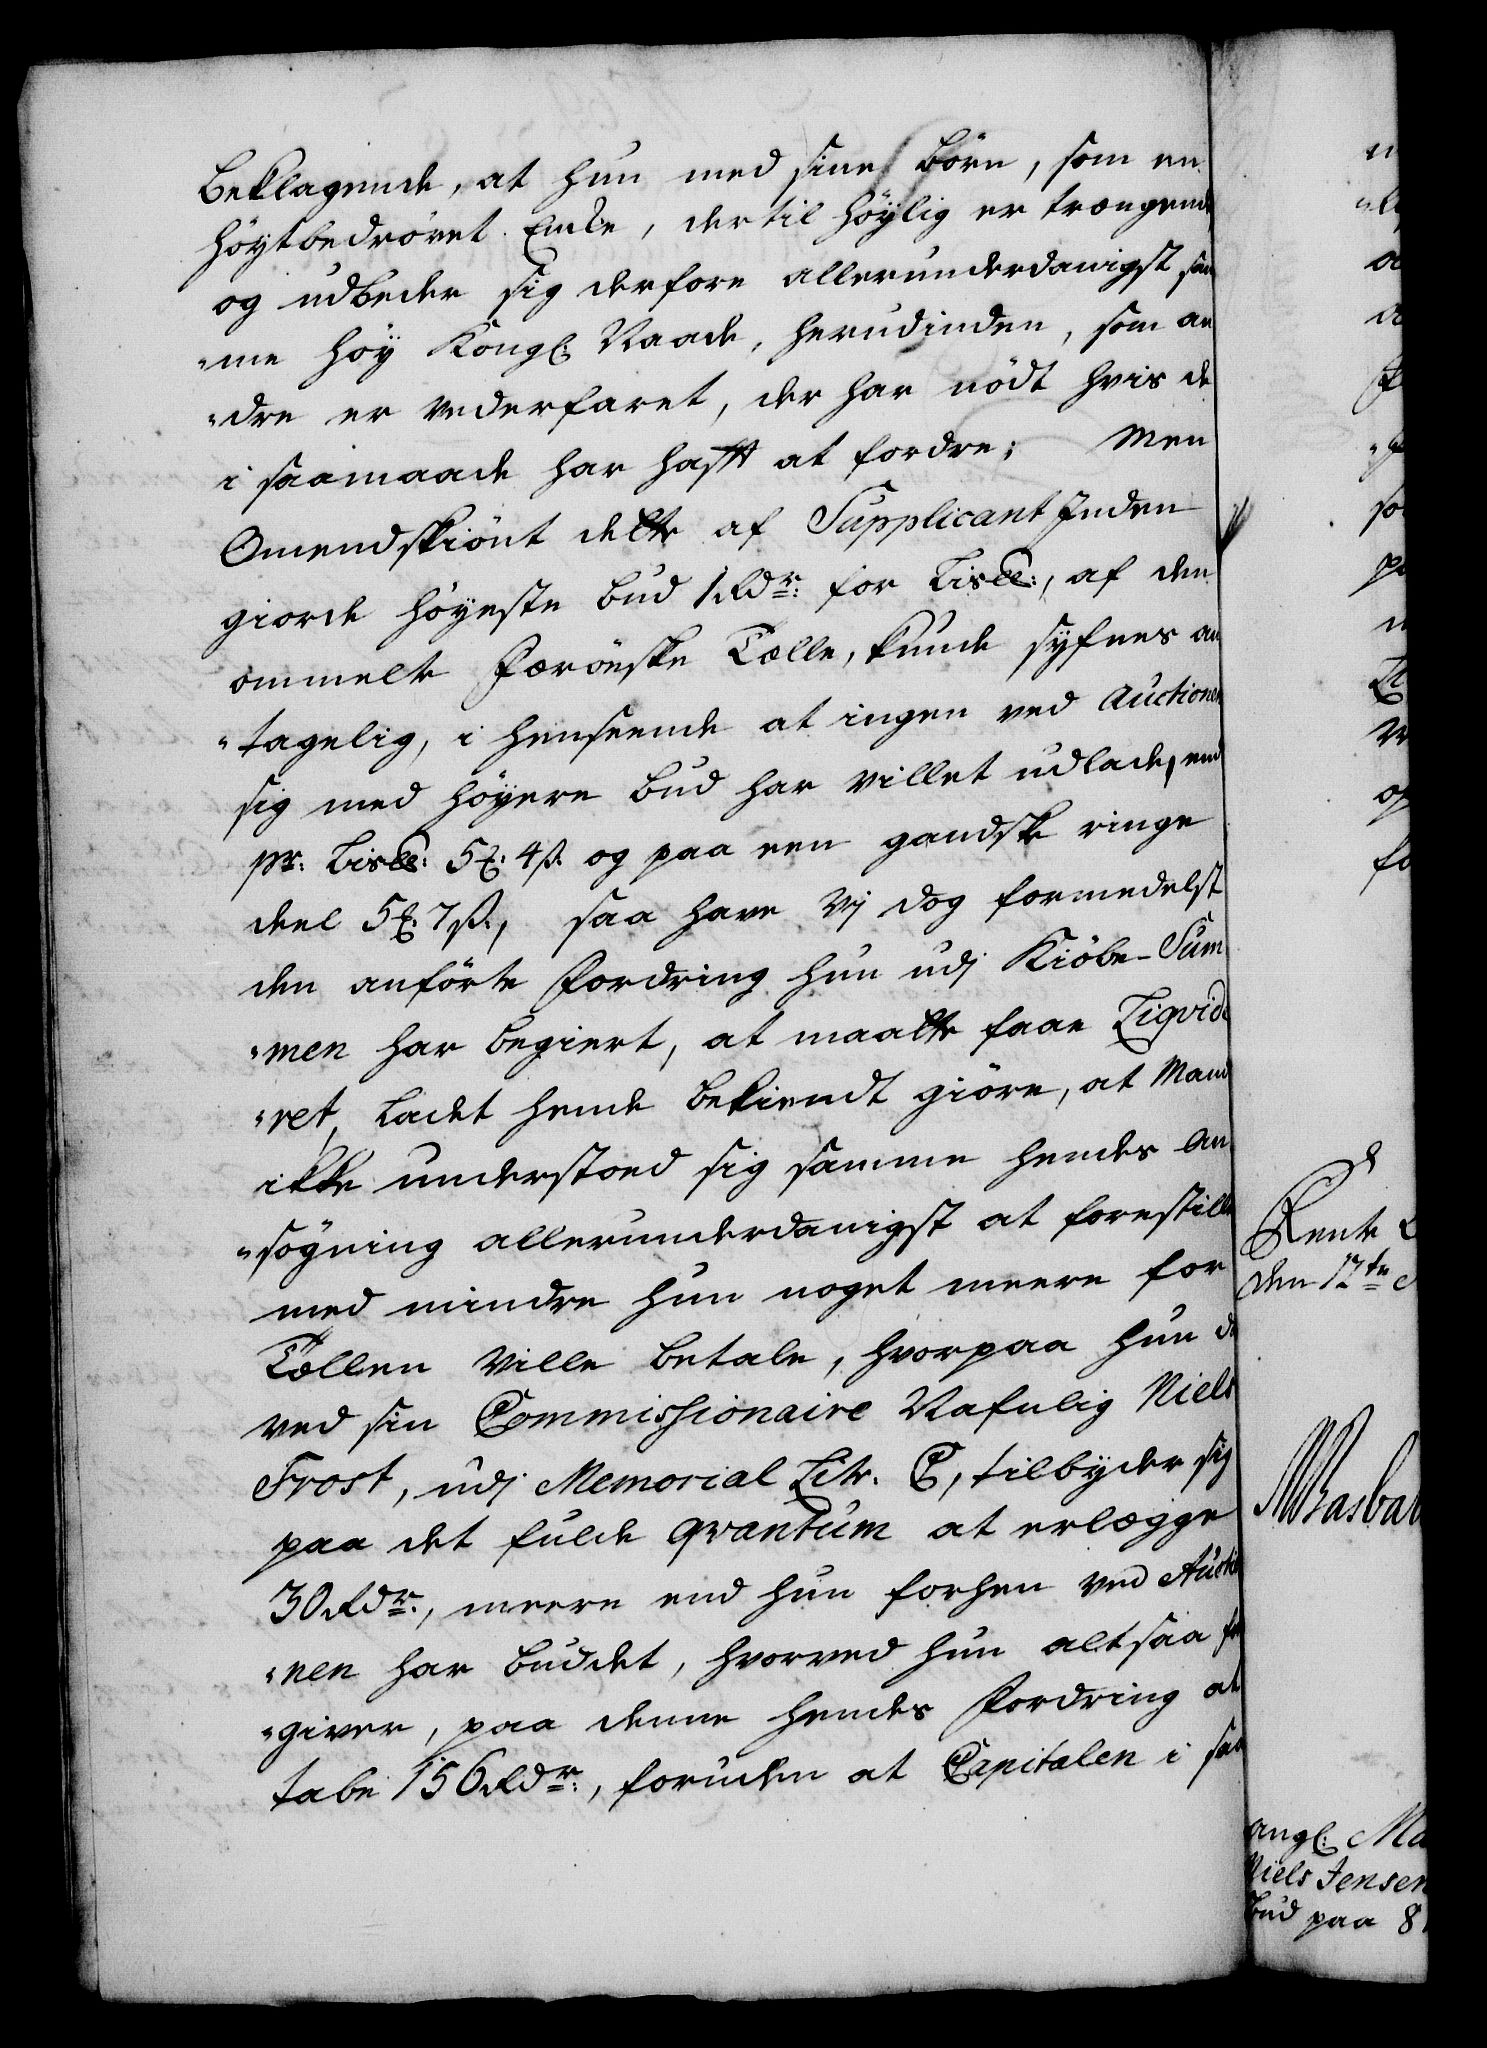 beklagende, at hun med sine börn, som en
höytbedrövet Encke, dertil höylig er trængende,
og udbeder sig derfore allerunderdanigst sam
"me höy Kongl: Naade, herudinden, som an
"dre er vederfaret, der har nödt hvis de
i saamaade har hafft at fordre; Men
Omendskiönt dette af Supplicantinden
giorde höyeste bud 1 Rdr: for Lis℔:, af den
ommelte Færöeske Tælle, kunde syfnes an
"tagelig, i henseende at ingen ved Auctionen
sig med höyere bud har villet udlade, end
pr: Lis℔: 5 ℳ: 4 ß. og paa een gandske ringe
deel 5 ℳ: 7 ß., saa have Vi dog formedelst
den anförte Fordring hun udj Kiöbe-Sum
"men har begiert, at maatte faae Liqvide
"ret, ladet hende bekiendt giöre, at Mand
ikke understoed sig samme hendes An
"sögning allerunderdanigst at forestille
med mindre hun noget meere for
Tællen ville betale, hvorpaa hun da
ved sin Commissionaire Nafnlig Niels
Frost, udj Memorial Litr. C, tilbyder sig
paa det fulde qvantum at erlægge
30 Rdr:, meere end hun forhen ved Auctio
"nen har buddet, hvorved hun altsaa for
"giver, paa denne hendes Fordring at
tabe 156 Rdr:, foruden at Capitalen i saa
Rente
den 12te
angl: Ma
Niels Jensen
bud paa 8